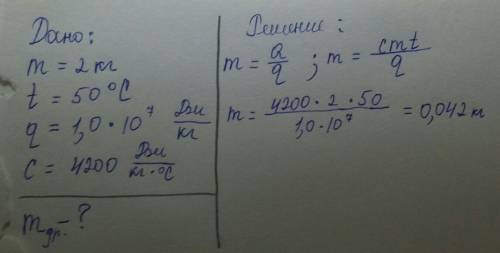 Дано:
m = 2 кг
t = 50°C
q = 1,0 · 10⁷ Дж/кг
C = 4200 Дж/кг·°C
m др. - ?
Решение:
m = Q/q ; m = cmt/q
m = 4200 · 2 · 50/1,0 · 10⁷ = 0,042 кг